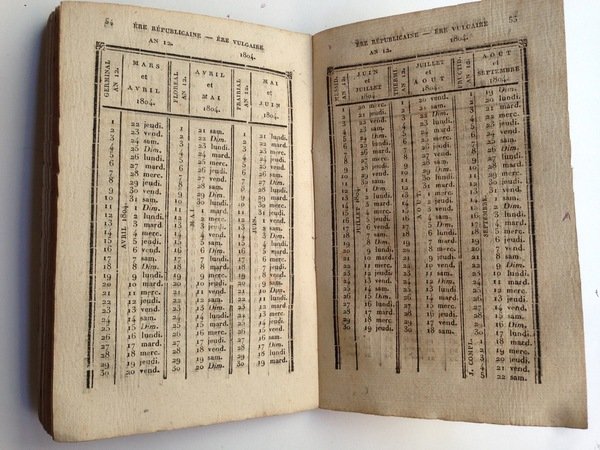 54 ÈRE RÉPUBLICAINE — ÈRE VULGAIRE
AN 12. 1804.
GERMINAL AN 12. MARS et AVRIL 1804. FLORÉAL AN 12. AVRIL et MAI 1804. PRAIRIAL AN 12. MAI et JUIN 1804.
1 22 jeudi. 1 21 sam. 1 21 lundi.
2 23 vend. 2 22 Dim. 2 22 mard.
3 24 sam. 3 23 lundi. 3 23 merc.
4 25 Dim. 4 24 mard. 4 24 jeudi.
5 26 lundi. 5 25 merc. 5 25 vend.
6 27 mard. 6 26 jeudi. 6 26 sam.
7 28 merc. 7 27 vend. 7 27 Dim.
8 29 jeudi. 8 28 sam. 8 28 lundi.
9 30 vend. 9 29 Dim. 9 29 mard.
10 31 sam. 10 30 lundi. 10 30 merc.
11 1 Dim. 11 1 mard. 11 31 jeudi.
12 2 lundi. 12 2 merc. 12 1 vend.
13 3 mard. 13 3 jeudi. 13 2 sam.
14 4 merc. 14 4 vend. 14 3 Dim.
15 5 jeudi. 15 5 sam. 15 4 lundi.
16 6 vend. 16 6 Dim. 16 5 mard.
17 7 sam. 17 7 lundi. 17 6 merc.
18 8 Dim. 18 8 mard. 18 7 jeudi.
19 9 lundi. 19 9 merc. 19 8 vend.
20 10 mard. 20 10 jeudi. 20 9 sam.
21 11 merc. 21 11 vend. 21 10 Dim.
22 12 jeudi. 22 12 sam. 22 11 lundi.
23 13 vend. 23 13 Dim. 23 12 mard.
24 14 sam. 24 14 lundi. 24 13 merc.
25 15 Dim. 25 15 mard. 25 14 jeudi.
26 16 lundi. 26 16 merc. 26 15 vend.
27 17 mard. 27 17 jeudi. 27 16 sam.
28 18 merc. 28 18 vend. 28 17 Dim.
29 19 jeudi. 29 19 sam. 29 18 lundi.
30 20 vend. 30 20 Dim. 30 19 mard.
AVRIL 1804. MAI JUIN
ÈRE RÉPUBLICAINE — ÈRE VULGAIRE 55
AN 12. 1804.
MESSID. AN 12. JUIN et JUILLET 1804. THERMI. AN 12. JUILLET et AOUT 1804. FRUCTID. AN 12. AOUT et SEPTEMBRE 1804.
1 20 merc. 1 20 vend. 1 19 Dim.
2 21 jeudi. 2 21 sam. 2 20 lundi.
3 22 vend. 3 22 Dim. 3 21 mard.
4 23 sam. 4 23 lundi. 4 22 merc.
5 24 Dim. 5 24 mard. 5 23 jeudi.
6 25 lundi. 6 25 merc. 6 24 vend.
7 26 mard. 7 26 jeudi. 7 25 sam.
8 27 merc. 8 27 vend. 8 26 Dim.
9 28 jeudi. 9 28 sam. 9 27 lundi.
10 29 vend. 10 29 Dim. 10 28 mard.
11 30 sam. 11 30 lundi. 11 29 merc.
12 1 Dim. 12 31 mard. 12 30 jeudi.
13 2 lundi. 13 1 merc. 13 31 vend.
14 3 mard. 14 2 jeudi. 14 1 sam.
15 4 merc. 15 3 vend. 15 2 Dim.
16 5 jeudi. 16 4 sam. 16 3 lundi.
17 6 vend. 17 5 Dim. 17 4 mard.
18 7 sam. 18 6 lundi. 18 5 merc.
19 8 Dim. 19 7 mard. 19 6 jeudi.
20 9 lundi. 20 8 merc. 20 7 vend.
21 10 mard. 21 9 jeudi. 21 8 sam.
22 11 merc. 22 10 vend. 22 9 Dim.
23 12 jeudi. 23 11 sam. 23 10 lundi.
24 13 vend. 24 12 Dim. 24 11 mard.
25 14 sam. 25 13 lundi. 25 12 merc.
26 15 Dim. 26 14 mard. 26 13 jeudi.
27 16 lundi. 27 15 merc. 27 14 vend.
28 17 mard. 28 16 jeudi. 28 15 sam.
29 18 merc. 29 17 vend. 29 16 Dim.
30 19 jeudi. 30 18 sam. 30 17 lundi.
1 18 mard.
2 19 merc.
3 20 jeudi.
4 21 vend.
5 22 sam.
JUILLET 1804. AOUT SEPTEMBRE.
J. COMPL.